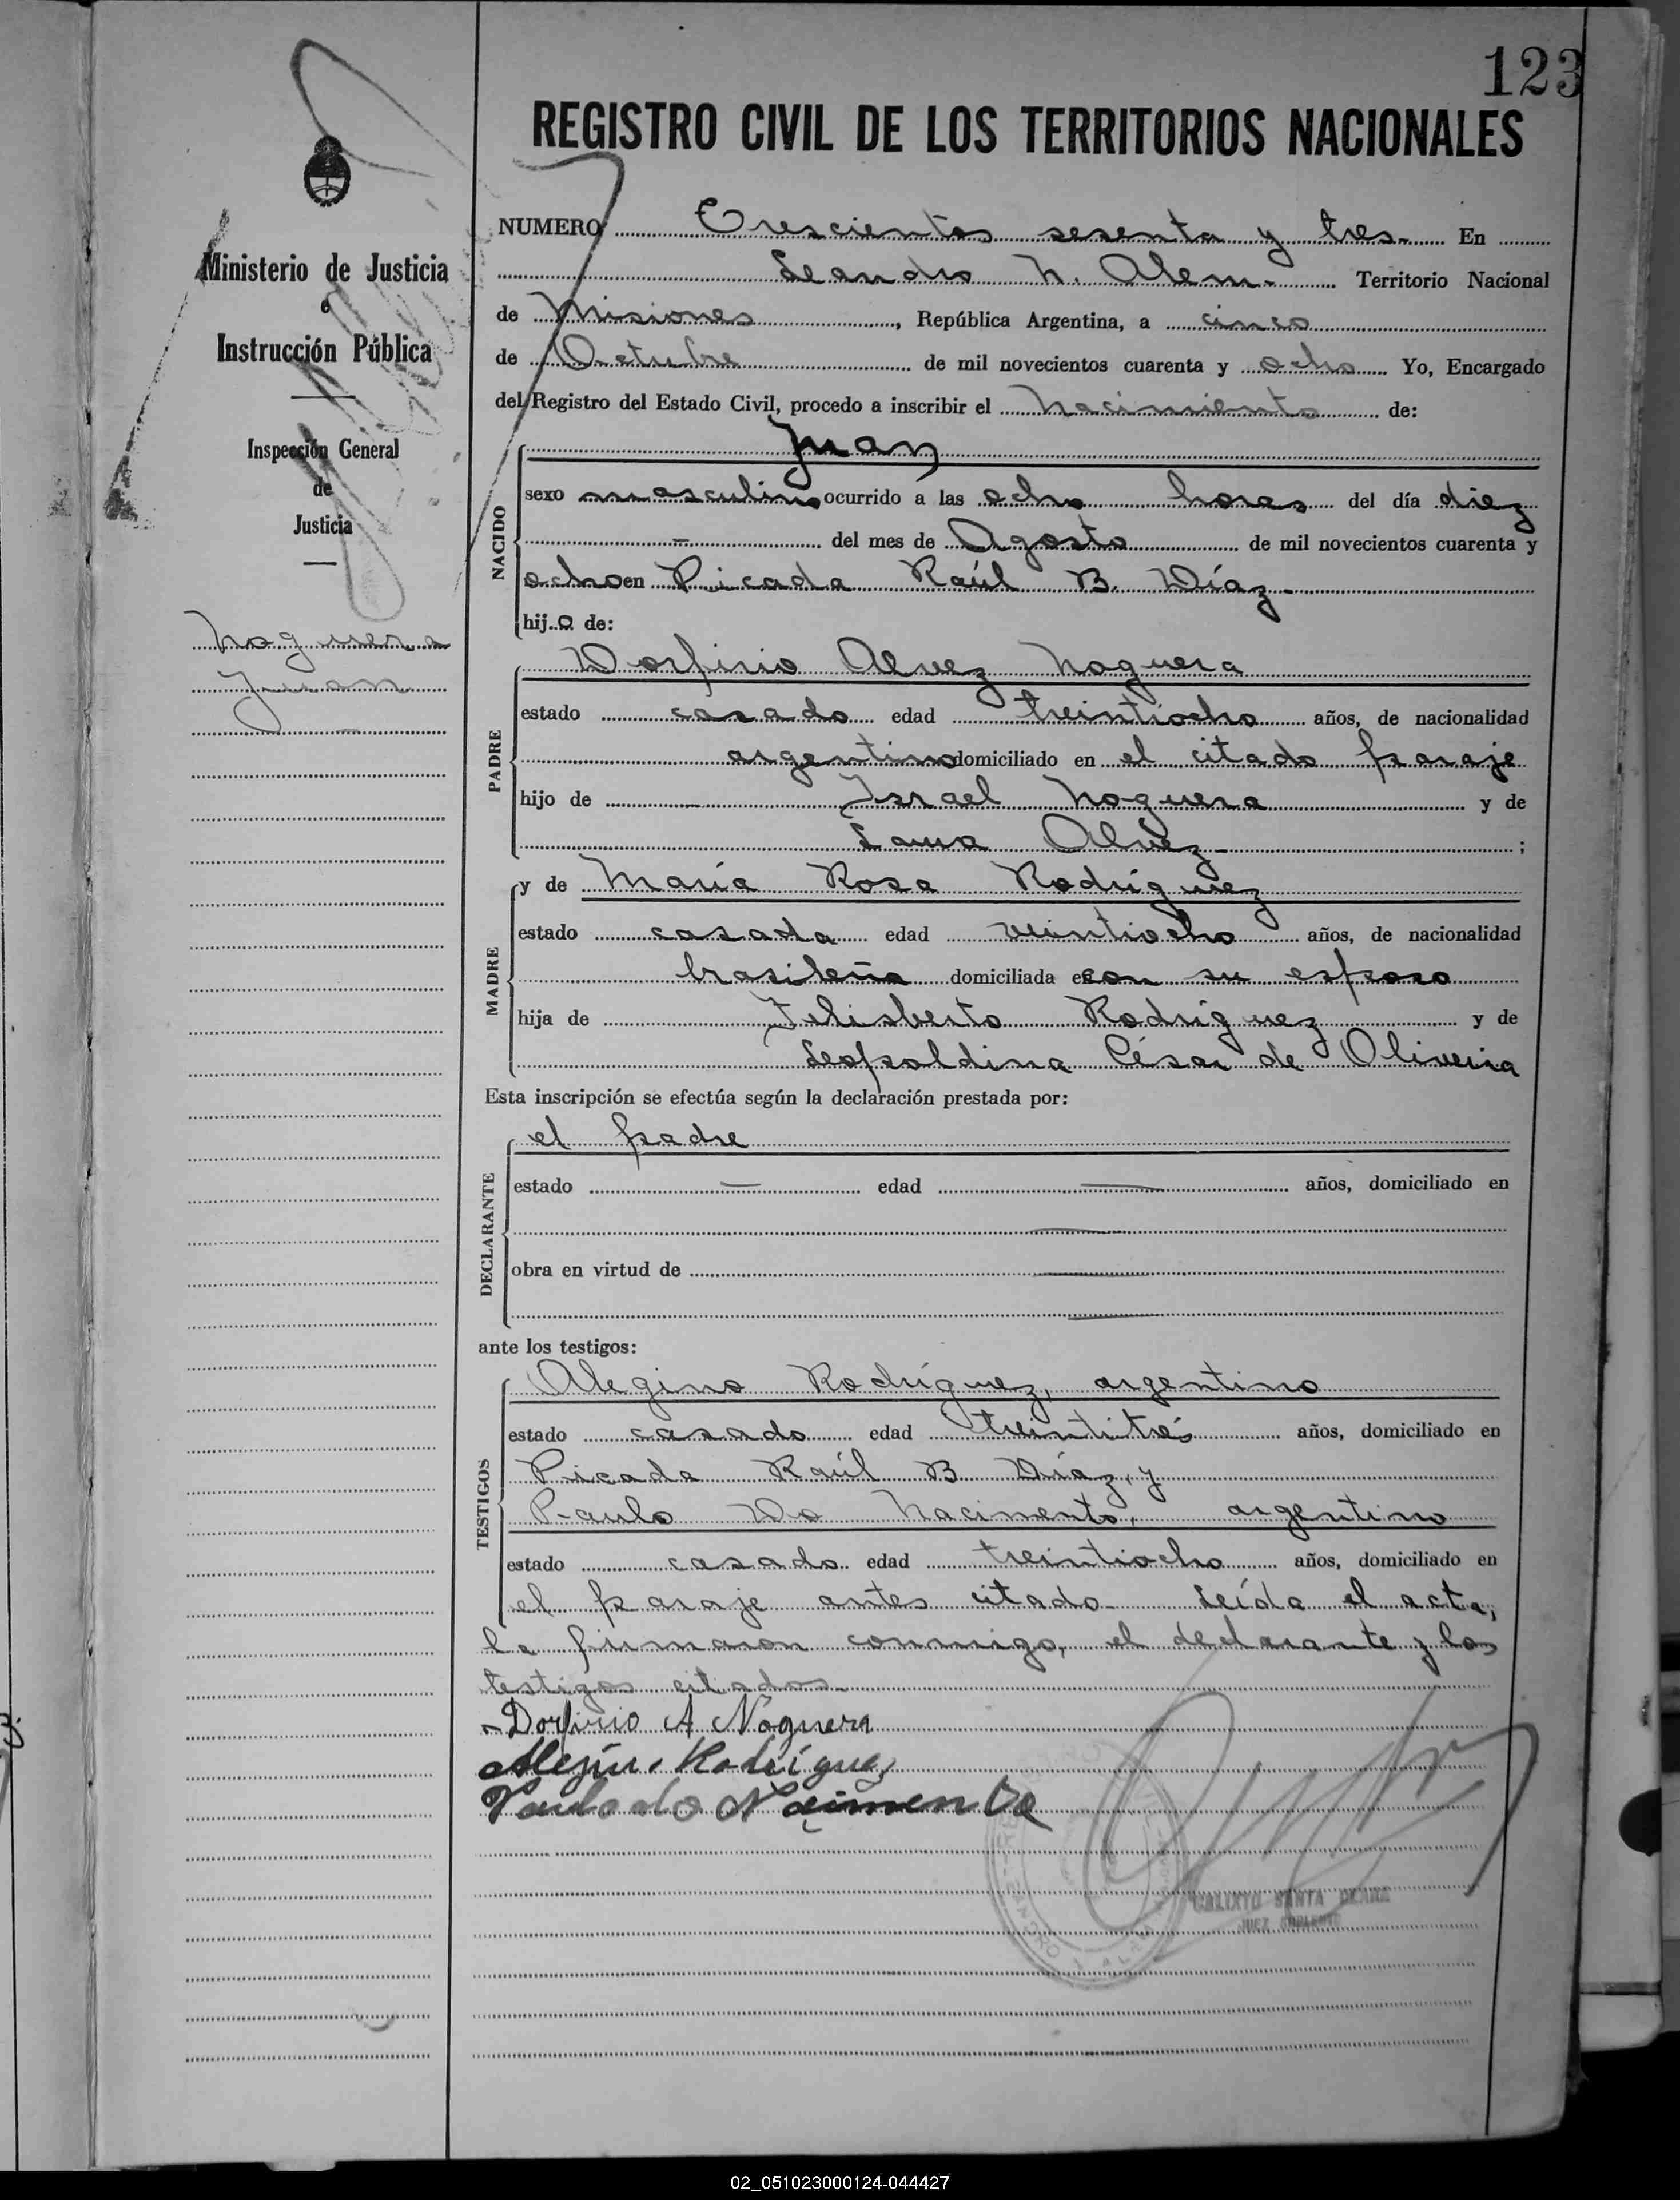 123
REGISTRO CIVIL DE LOS TERRITORIOS NACIONALES
Ministerio de Justicia
e
Instrucción Pública
Inspección General
de
Justicia
Noguera
Juan
NUMERO Trescientos sesenta y tres. En
Leandro N. Alem. Territorio Nacional
de Misiones, República Argentina, a cinco
de Octubre de mil novecientos cuarenta y ocho Yo, Encargado
del Registro del Estado Civil, procedo a inscribir el nacimiento de:
Juan
NACIDO
sexo masculino ocurrido a las ocho horas del día diez
— del mes de Agosto de mil novecientos cuarenta y
ocho en Picada Raúl B. Díaz.
hijo de:
PADRE
Dorfirio Alvez Noguera
estado casado edad treintiocho años, de nacionalidad
argentino domiciliado en el citado paraje
hijo de Israel Noguera y de
Laura Alvez ;
MADRE
y de María Rosa Rodríguez
estado casada edad veintiocho años, de nacionalidad
brasileña domiciliada con su esposo
hija de Felisberto Rodríguez y de
Leopoldina César de Oliveira
Esta inscripción se efectúa según la declaración prestada por:
DECLARANTE
el padre
estado — edad — años, domiciliado en
obra en virtud de
ante los testigos:
TESTIGOS
Alegino Rodríguez, argentino
estado casado edad treintitrés años, domiciliado en
Picada Raúl B Díaz, y
Paulo Do Nacimento, argentino
estado casado edad treintiocho años, domiciliado en
el paraje antes citado. Leída el acta,
la firmaron conmigo, el declarante y los
testigos citados.
Dorfirio A Noguera
Rodríguez
Paulo do Nacimento
CALIXTO SANTA
JUEZ SUPLENTE
02_051023000124-044427